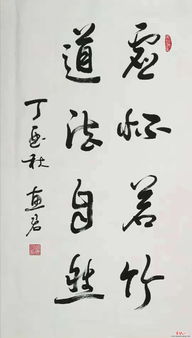 虚怀若竹
道法自然
丁酉秋